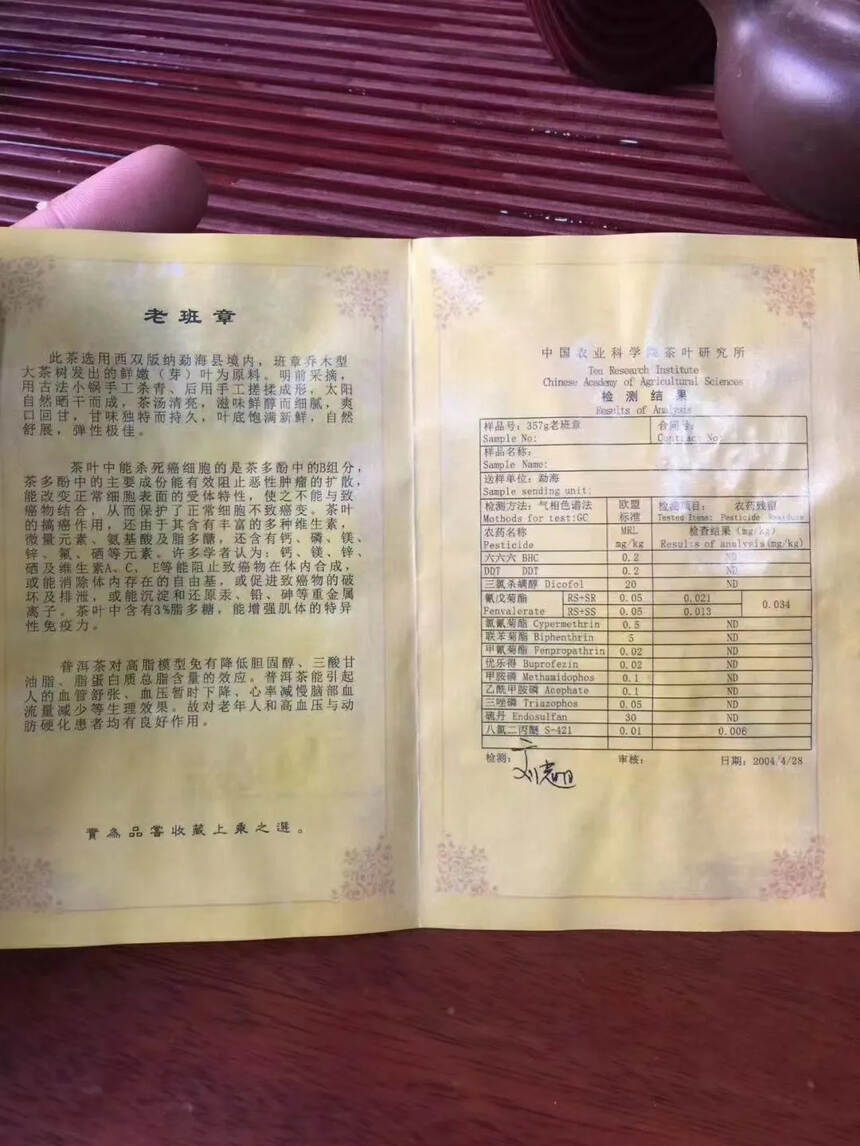 老班章
此茶选用西双版纳勐海县境内，班章乔木型
大茶树发出的鲜嫩（芽）叶为原料，明前采摘，
用古法小锅手工杀青、后用手工搓揉成形，太阳
自然晒干而成，茶汤清亮，滋味鲜醇而细腻，爽
口回甘，甘味独特而持久，叶底饱满新鲜，自然
舒展，弹性极佳。
茶叶中能杀死癌细胞的是茶多酚中的B组分，
茶多酚中的主要成份能有效阻止恶性肿瘤的扩散，
能改变正常细胞表面的受体特性，使之不能与致
癌物结合，从而保护了正常细胞不致癌变。茶叶
的搞癌作用，还由于其含有丰富的多种维生素，
微量元素、氨基酸及脂多醣，还含有钙、磷、镁、
锌、氟、硒等元素。许多学者认为：钙、镁、锌、
硒及维生素A、C， E等能阻止致癌物在体内合成，
或能消除体内存在的自由基，或促进致癌物的破
坏及排泄，或能沉淀和还原汞、铅、砷等重金属
离子。茶叶中含有3%脂多糖，能增强肌体的特异
性免疫力。
普洱茶对高脂模型免有降低胆固醇、三酸甘
油脂、脂蛋白质总脂含量的效应。普洱茶能引起
人的血管舒张、血压暂时下降、心率减慢脑部血
流量减少等生理效果。故对老年人和高血压与动
肪硬化患者均有良好作用。
實為品嘗收藏上乘之選。
中国农业科学院茶叶研究所
Tea Research Institute
Chinese Academy of Agricultural Sciences
检测结果
Results of Analysis
样品号：357g老班章 合同号：
Sample No: Contract No:
样品名称：
Sample Name:
送样单位：勐海
Sample sending unit:
检测方法：气相色谱法 欧盟 检测项目： 农药残留
Methods for test:GC 标准 Tested Items: Pesticide Residues
农药名称 MRL 检查结果（mg/kg）
Pesticide mg/kg Results of analysis(mg/kg)
六六六 BHC 0.2 ND
DDT DDT 0.2 ND
三氯杀螨醇 Dicofol 20 ND
氰戊菊酯 RS+SR 0.05 0.021 0.034
Fenvalerate RS+SS 0.05 0.013
氯氰菊酯 Cypermethrin 0.5 ND
联苯菊酯 Biphenthrin 5 ND
甲氰菊酯 Fenpropathrin 0.02 ND
优乐得 Buprofezin 0.02 ND
甲胺磷 Methamidophos 0.1 ND
乙酰甲胺磷 Acephate 0.1 ND
三唑磷 Triazophos 0.05 ND
硫丹 Endosulfan 30 ND
八氯二丙醚 S-421 0.01 0.006
检测： 审核： 日期：2004/4/28